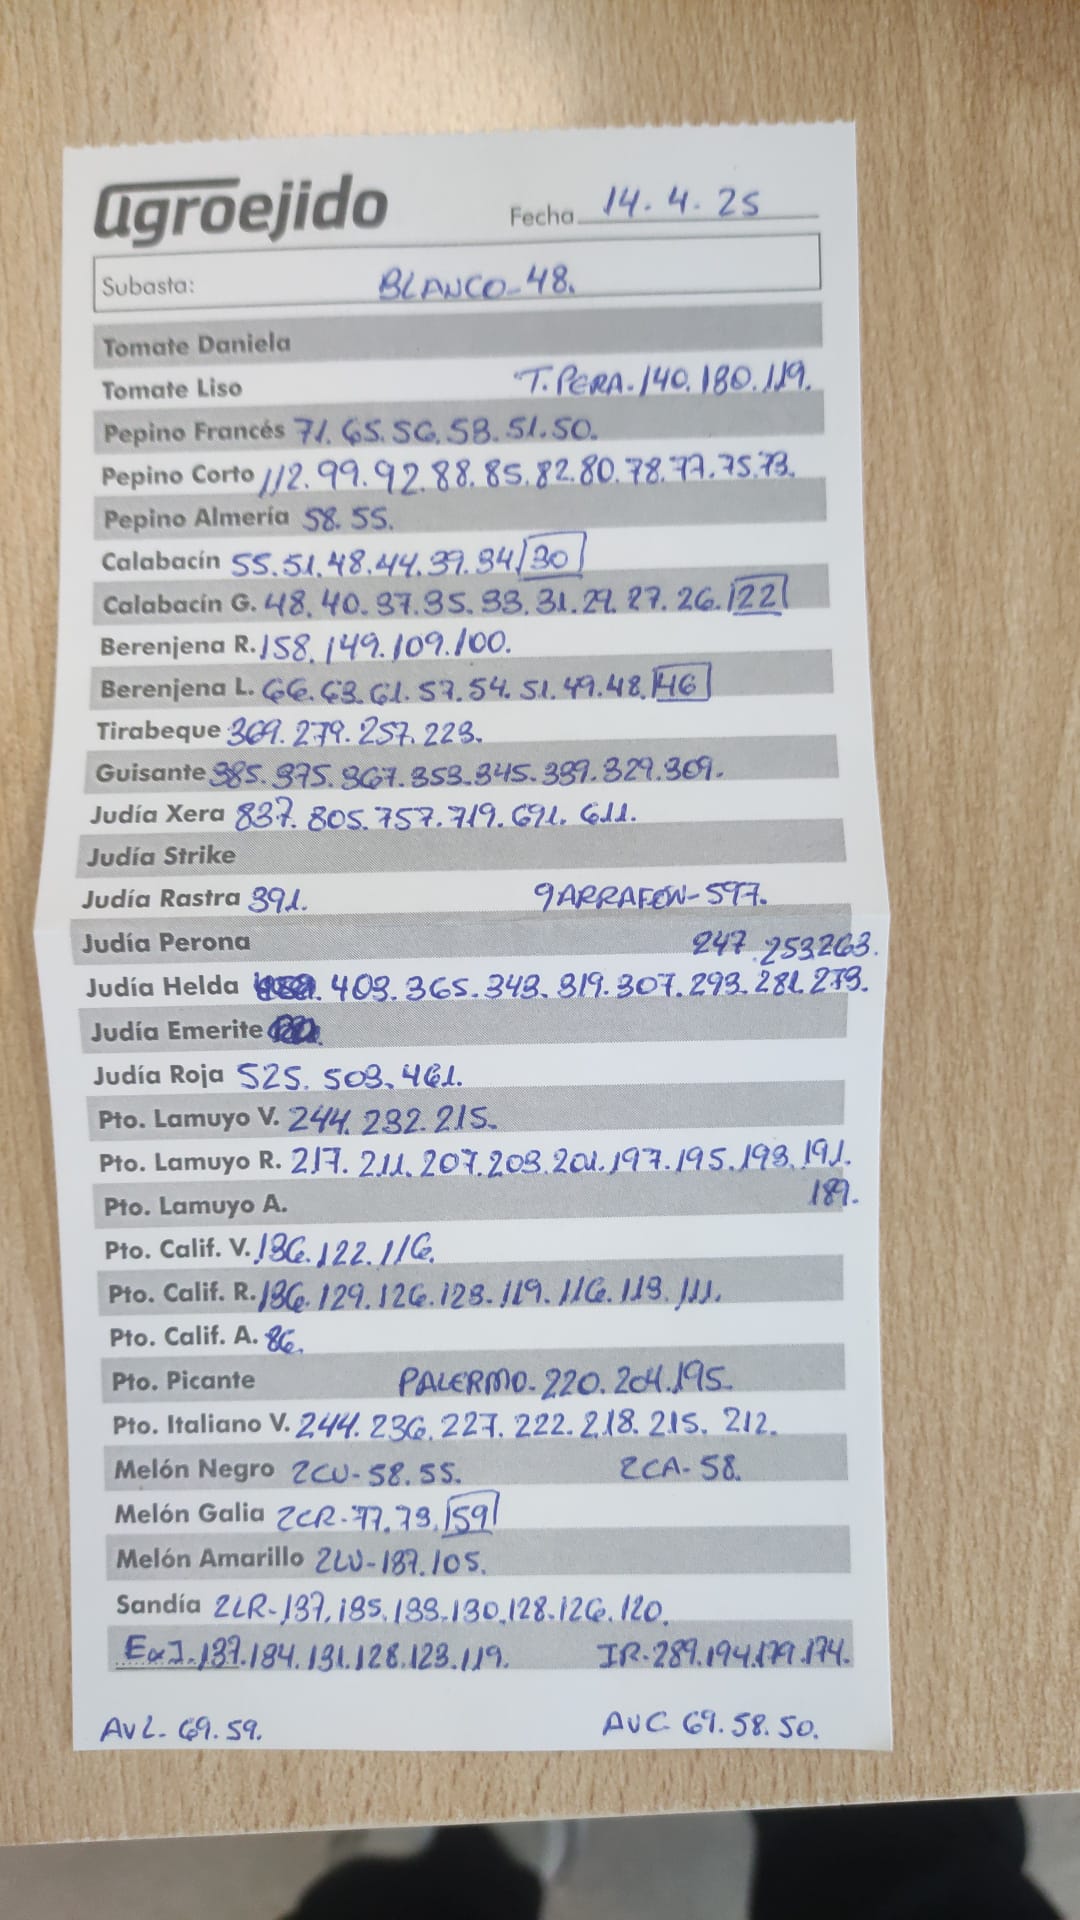 agroejido
Fecha 14.4.25
Subasta: BLANCO-48.
Tomate Daniela
Tomate Liso T.PERA.140.180.119.
Pepino Francés 71.65.56.53.51.50.
Pepino Corto 112.99.92.88.85.82.80.78.77.75.73.
Pepino Almería 58.55.
Calabacín 55.51.48.44.39.34/30
Calabacín G. 48.40.37.35.33.31.29.27.26./22
Berenjena R. 158.149.109.100.
Berenjena L. 66.63.61.57.54.51.49.48.46
Tirabeque 369.279.257.223.
Guisante 385.375.367.353.345.339.329.309.
Judía Xera 837.805.757.719.691.611.
Judía Strike
Judía Rastra 391. GARRAFON-597.
Judía Perona 247.253.263.
Judía Helda 403.365.343.319.307.293.281.273.
Judía Emerite
Judía Roja 525.503.461.
Pto. Lamuyo V. 244.232.215.
Pto. Lamuyo R. 217.211.207.203.201.197.195.193.191.
Pto. Lamuyo A. 189.
Pto. Calif. V. 136.122.116.
Pto. Calif. R. 136.129.126.123.119.116.113.111.
Pto. Calif. A. 86.
Pto. Picante PALERMO-220.204.195.
Pto. Italiano V. 244.236.227.222.218.215.212.
Melón Negro 2CU-58.55. 2CA-58.
Melón Galia 2CR-77.73.59
Melón Amarillo 2LU-187.105.
Sandía 2LR-137.135.133.130.128.126.120.
ExJ.137.134.131.128.123.119. IR-289.194.179.174.
AVL-69.59. AUC-69.58.50.